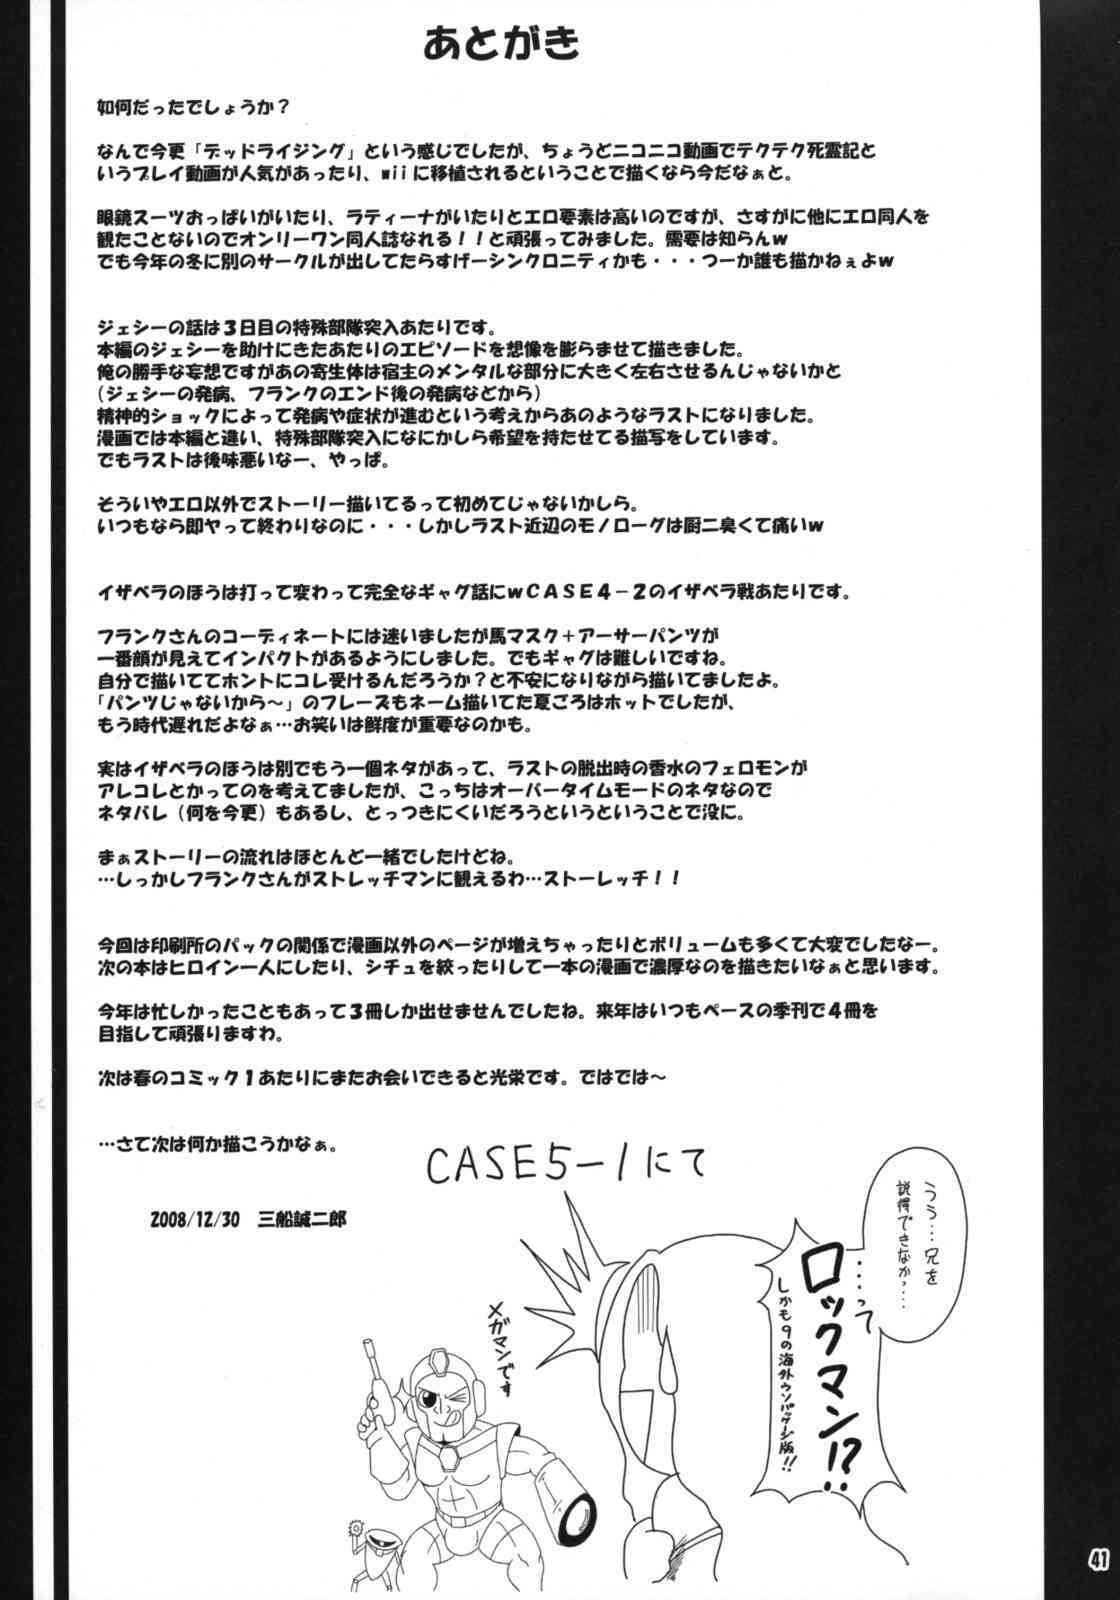 あとがき
如何だったでしょうか？
なんで今更「デッドライジング」という感じでしたが、ちょうどニコニコ動画でテクテク死霊記と
いうプレイ動画が人気があったり、wiiに移植されるということで描くなら今だなぁと。
眼鏡スーツおっぱいがいたり、ラティーナがいたりとエロ要素は高いのですが、さすがに他にエロ同人を
観たことないのでオンリーワン同人誌なれる！！と頑張ってみました。需要は知らんw
でも今年の冬に別のサークルが出してたらすげーシンクロニティかも・・・つーか誰も描かねぇよw
ジェシーの話は３日目の特殊部隊突入あたりです。
本編のジェシーを助けにきたあたりのエピソードを想像を膨らませて描きました。
俺の勝手な妄想ですがあの寄生体は宿主のメンタルな部分に大きく左右させるんじゃないかと
（ジェシーの発病、フランクのエンド後の発病などから）
精神的ショックによって発病や症状が進むという考えからあのようなラストになりました。
漫画では本編と違い、特殊部隊突入になにかしら希望を持たせてる描写をしています。
でもラストは後味悪いなー、やっぱ。
そういやエロ以外でストーリー描いてるって初めてじゃないかしら。
いつもなら即ヤって終わりなのに・・・しかしラスト近辺のモノローグは厨二臭くて痛いw
イザベラのほうは打って変わって完全なギャグ話にwＣＡＳＥ４－２のイザベラ戦あたりです。
フランクさんのコーディネートには迷いましたが馬マスク＋アーサーパンツが
一番顔が見えてインパクトがあるようにしました。でもギャグは難しいですね。
自分で描いててホントにコレ受けるんだろうか？と不安になりながら描いてましたよ。
「パンツじゃないから～」のフレーズもネーム描いてた夏ごろはホットでしたが、
もう時代遅れだよなぁ…お笑いは鮮度が重要なのかも。
実はイザベラのほうは別でもう一個ネタがあって、ラストの脱出時の香水のフェロモンが
アレコレとかってのを考えてましたが、こっちはオーバータイムモードのネタなので
ネタバレ（何を今更）もあるし、とっつきにくいだろうというということで没に。
まぁストーリーの流れはほとんど一緒でしたけどね。
…しっかしフランクさんがストレッチマンに観えるわ…ストーレッチ！！
今回は印刷所のパックの関係で漫画以外のページが増えちゃったりとボリュームも多くて大変でしたなー。
次の本はヒロイン一人にしたり、シチュを絞ったりして一本の漫画で濃厚なのを描きたいなぁと思います。
今年は忙しかったこともあって３冊しか出せませんでしたね。来年はいつもペースの季刊で４冊を
目指して頑張りますわ。
次は春のコミック１あたりにまたお会いできると光栄です。ではでは～
…さて次は何か描こうかなぁ。
2008/12/30　三船誠二郎
CASE5-1にて
うう…兄を
説得できなか…
…って
ロックマン!?
しかも9の海外ウソパッケージ版!!
メガマンです
41